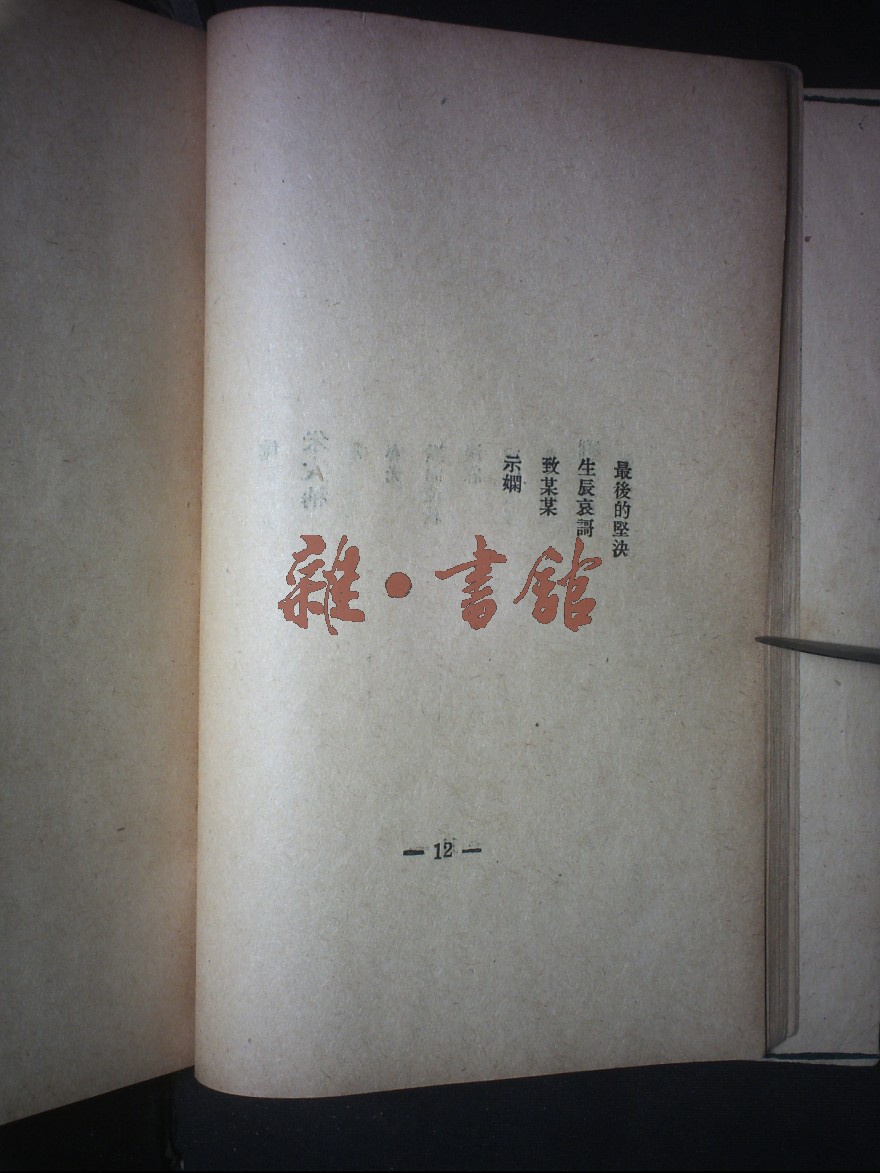 最後的堅決
生辰哀謌
致某某
示嫻
雜·書館
— 12 —